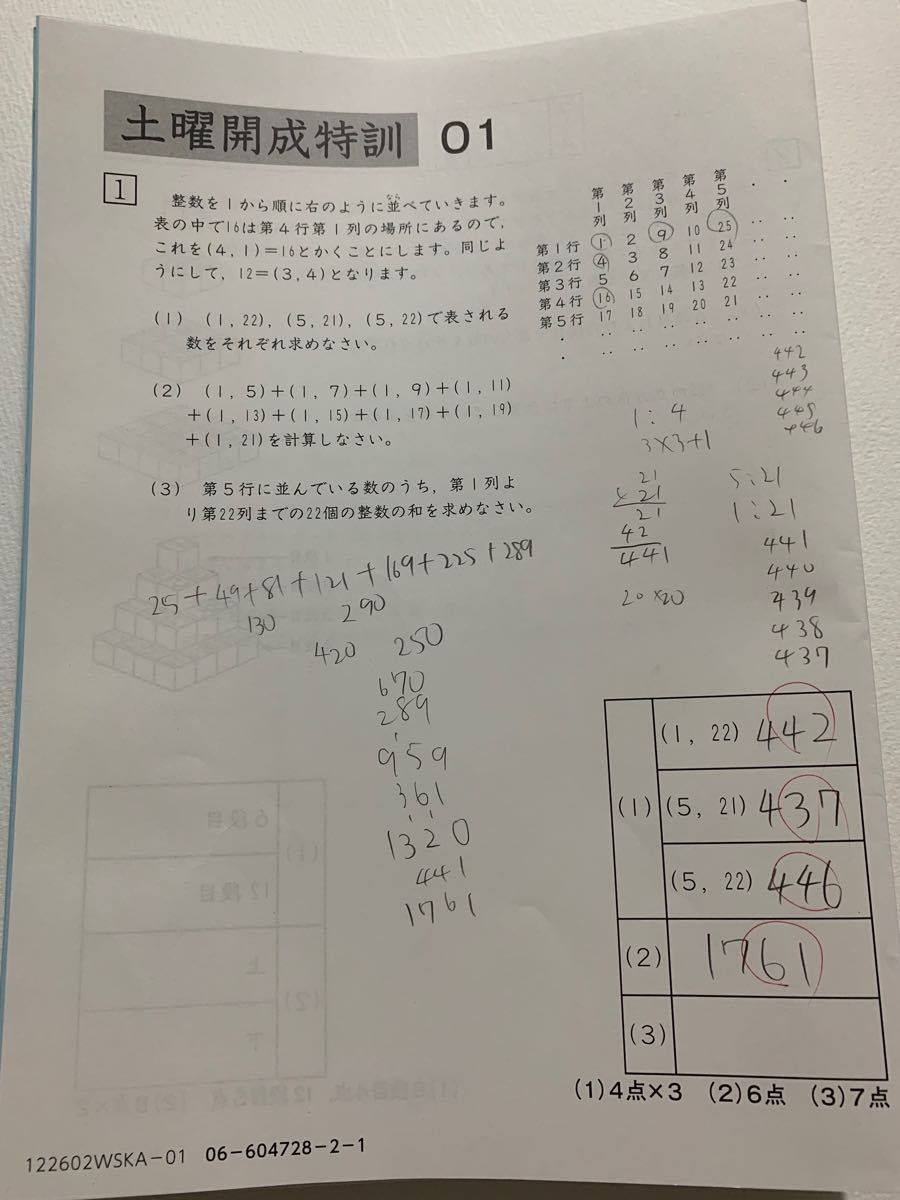 土曜開成特訓 01
1
整数を1から順に右のように並べていきます。
なら
表の中で16は第4行第1列の場所にあるので,
これを(4, 1)=16とかくことにします。同じよ
うにして, 12=(3, 4)となります。
第1列 第2列 第3列 第4列 第5列 ・ ・
第1行 1 2 9 10 25 ‥ ‥
第2行 4 3 8 11 24 ‥ ‥
第3行 5 6 7 12 23 ‥ ‥
第4行 16 15 14 13 22 ‥ ‥
第5行 17 18 19 20 21 ‥ ‥
・ ‥ ‥ ‥ ‥ ‥ ‥ ‥
・ ‥ ‥ ‥ ‥ ‥ ‥ ‥
(1) (1, 22), (5, 21), (5, 22)で表される
数をそれぞれ求めなさい。
(2) (1, 5)+(1, 7)+(1, 9)+(1, 11)
+(1, 13)+(1, 15)+(1, 17)+(1, 19)
+(1, 21)を計算しなさい。
(3) 第5行に並んでいる数のうち, 第1列よ
り第22列までの22個の整数の和を求めなさい。
442
443
444
445
446
1:4
3×3+1
21
×21
21
42
441
20×20
5:21
1:21
441
440
439
438
437
25+49+81+121+169+225+289
130 290
420 250
670
289
959
361
1320
441
1761
(1) (1, 22) 442
(5, 21) 437
(5, 22) 446
(2) 1761
(3)
(1)4点×3 (2)6点 (3)7点
122602WSKA-01 06-604728-2-1